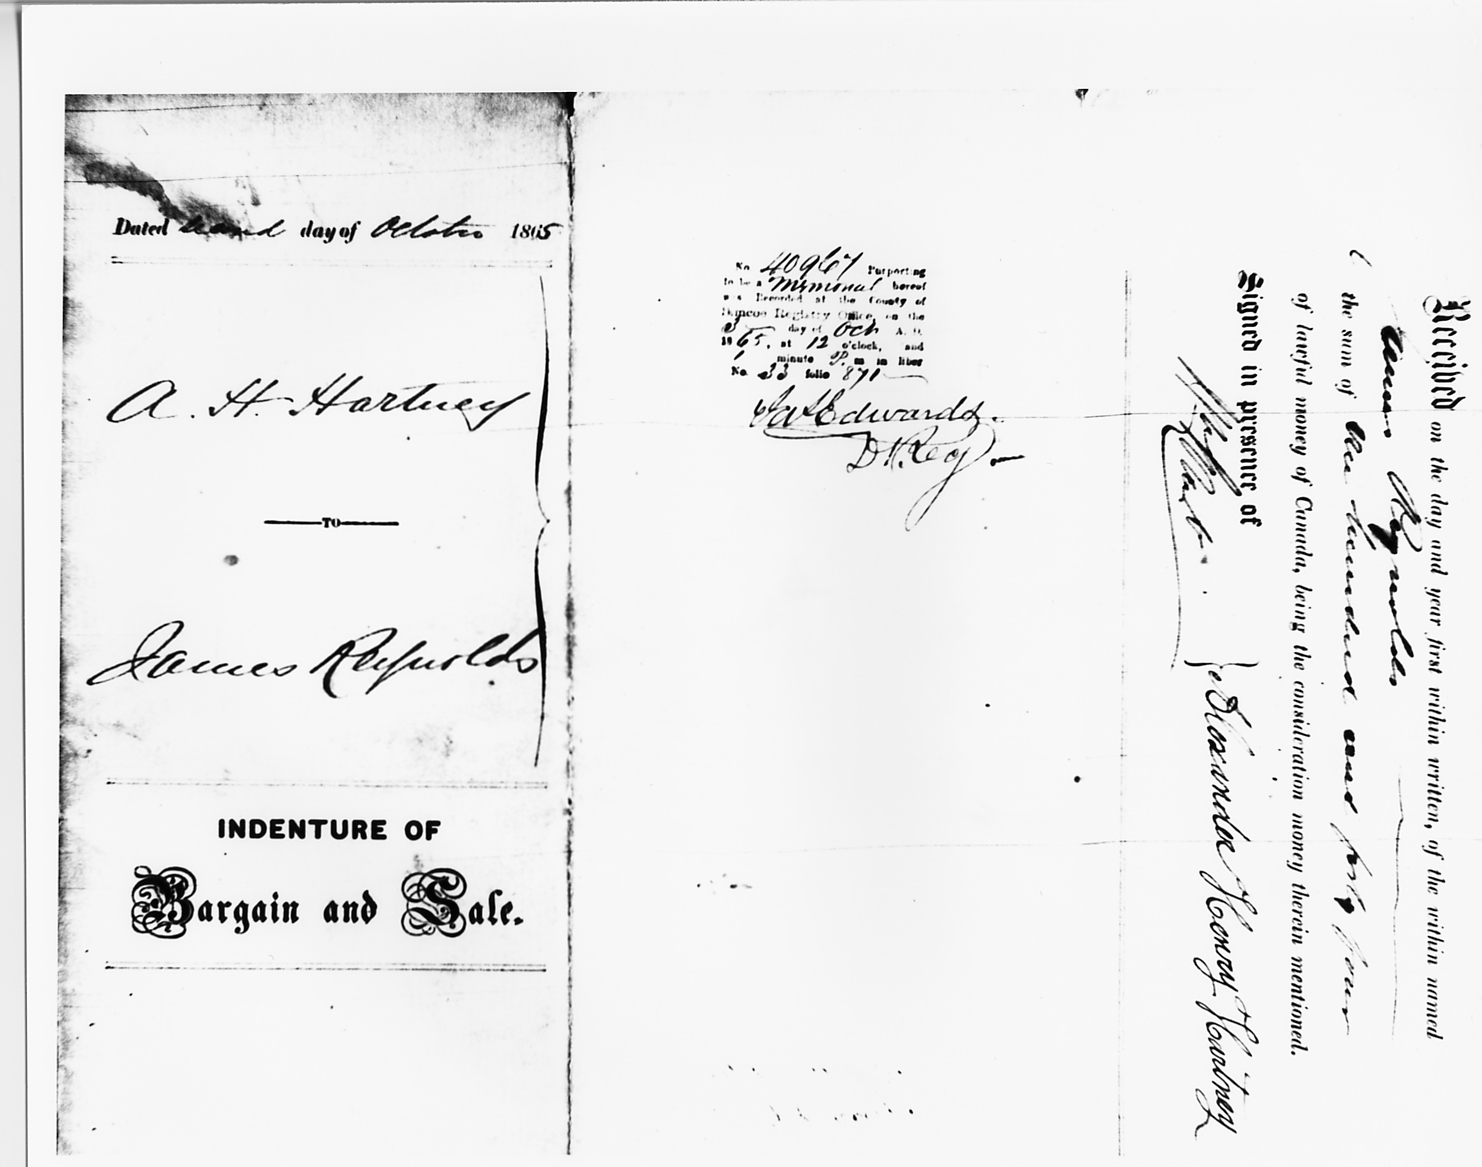 Dated second day of October 1865
A. H. Hartney
TO
James Reynolds
INDENTURE OF
Bargain and Sale.
No. 40967 Purporting
to be a Memorial hereof
was Recorded at the County of
Simcoe Registry Office, on the
3 day of Oct A. D.
1865, at 12 o'clock, and
1 minute P. m in liber
No. 33 folio 871
Edwards.
D. Reg.
Received on the day and year first within written, of the within named
James Reynolds
the sum of hundred and forty four
of lawful money of Canada, being the consideration money therein mentioned.
Signed in presence of
Alexander Henry Hartney